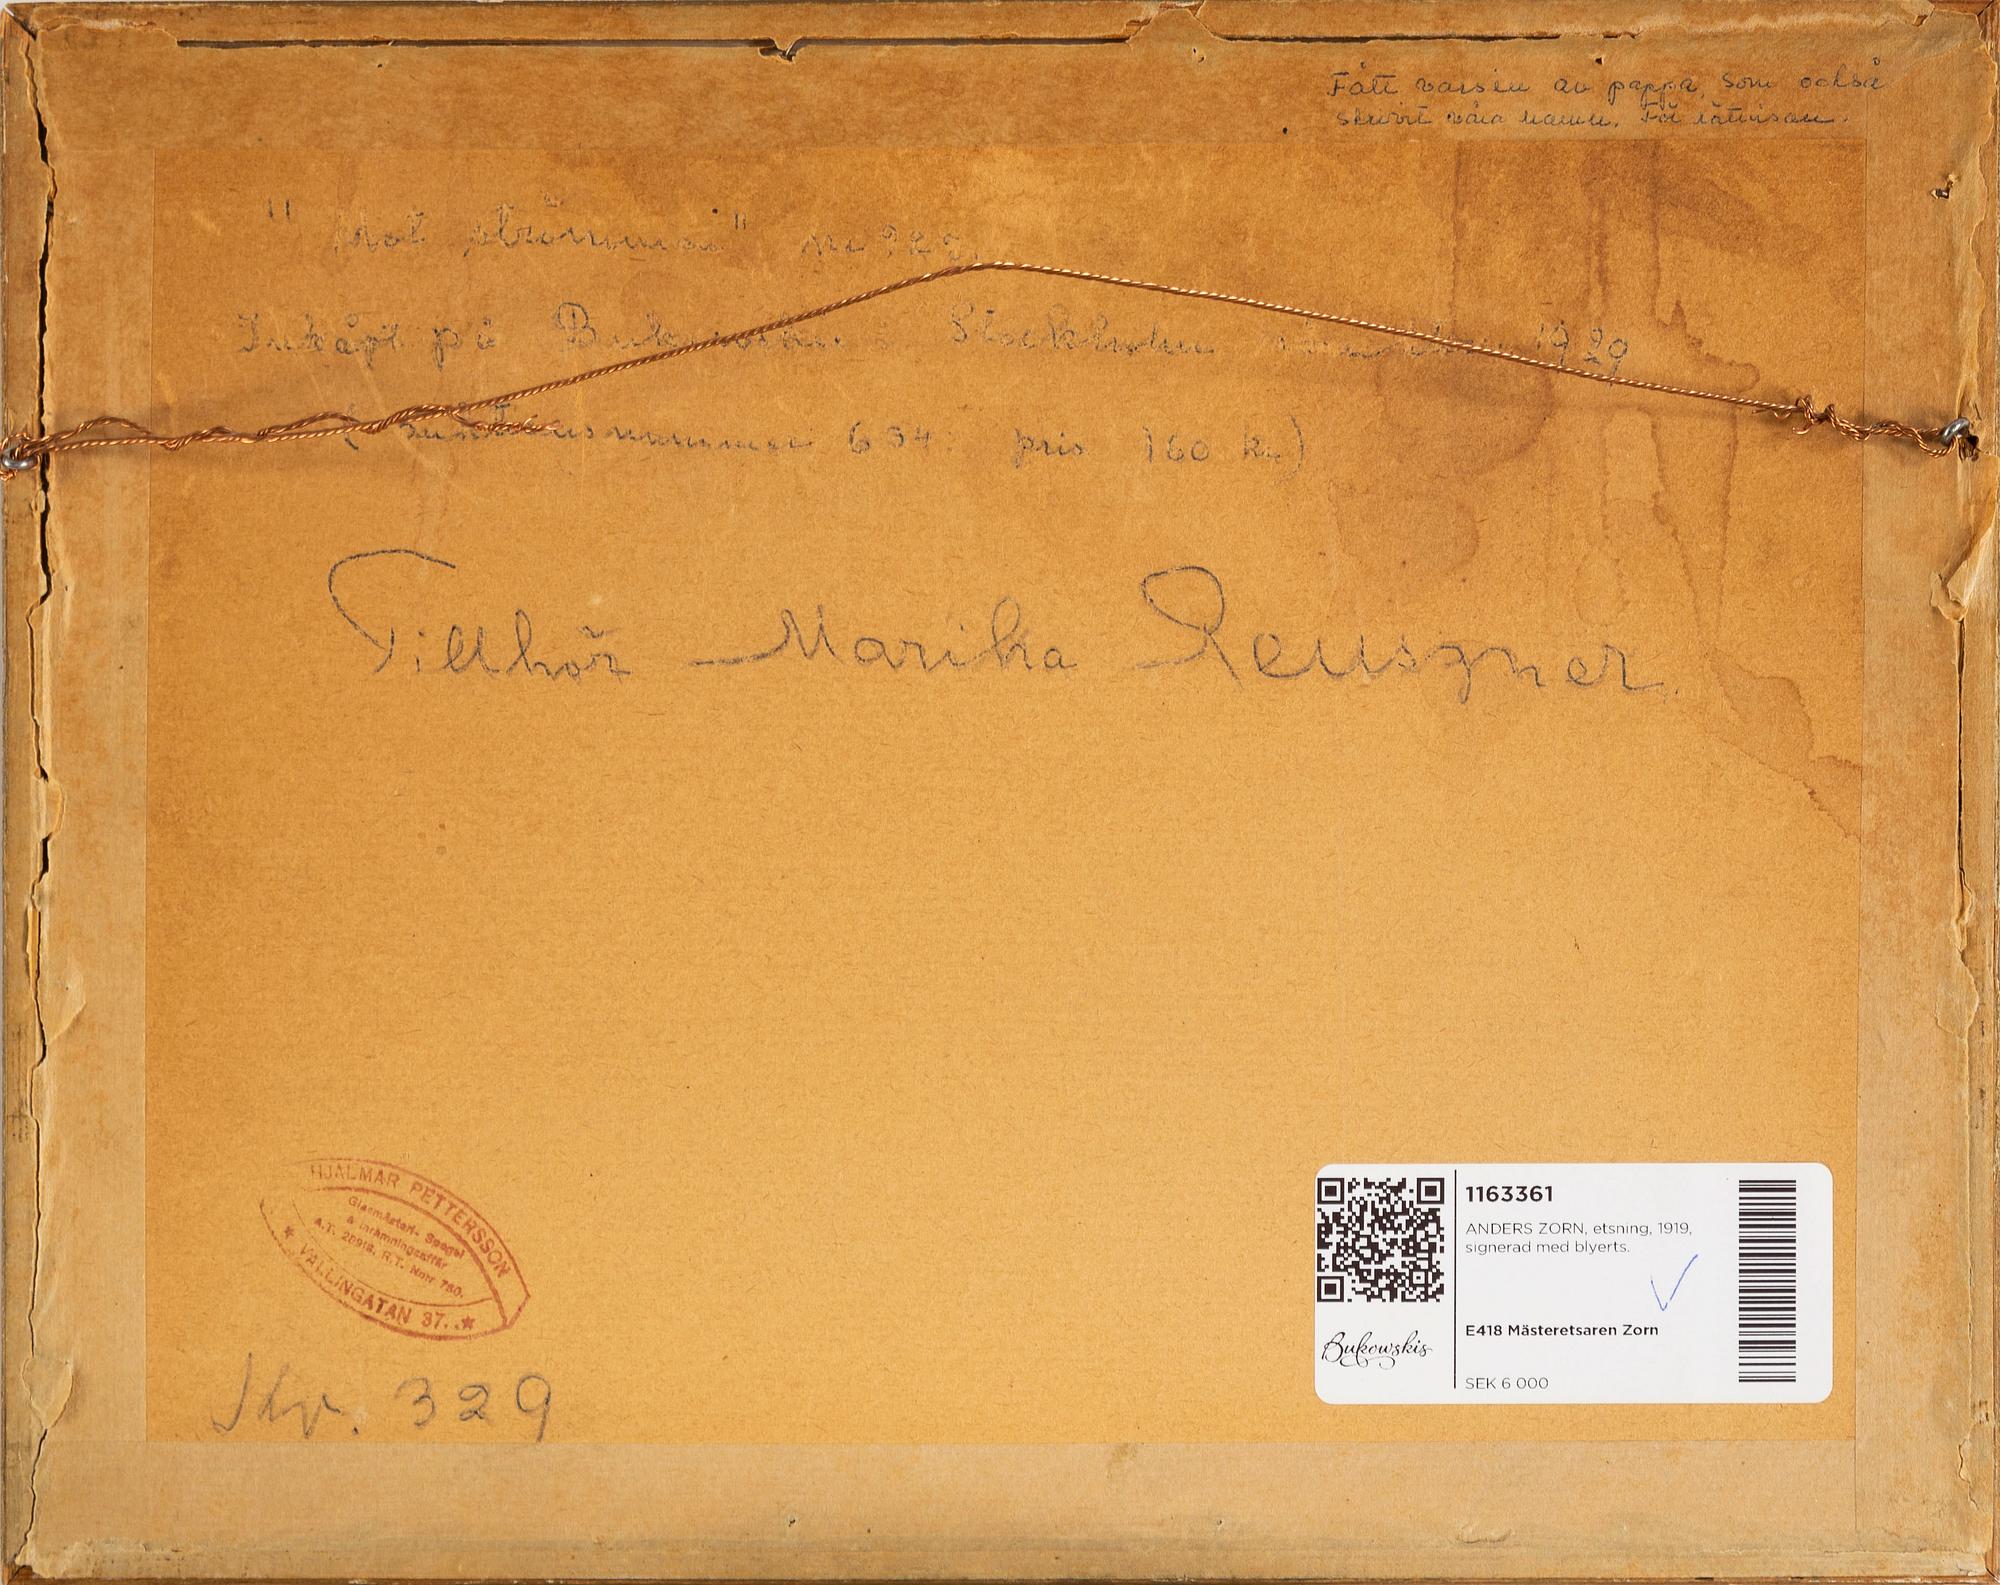 Fått varsin av pappa, som också
skrivit våra namn. För rättvisan.
"Mot strömmen" nr 329.
Inköpt på Bukowskis Stockholm 1929
( auktionsnummer 634: pris 160 kr)
Tillhör Marika Reuszner.
HJALMAR PETTERSSON
Glasmästeri- Spegel
& Inramningsaffär
A.T. 28918. R.T. Norr 780.
★ VALLINGATAN 37. ★
329
1163361
ANDERS ZORN, etsning, 1919,
signerad med blyerts.
E418 Mästeretsaren Zorn
Bukowskis
SEK 6 000